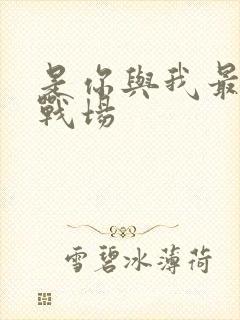 是你與我最
戰場
雪碧冰薄荷